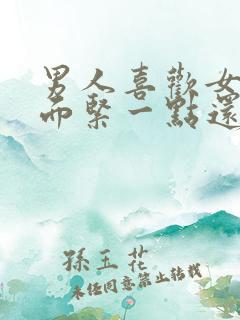 男人喜歡女
而緊一點還
孫玉花
未經同意禁止轉載